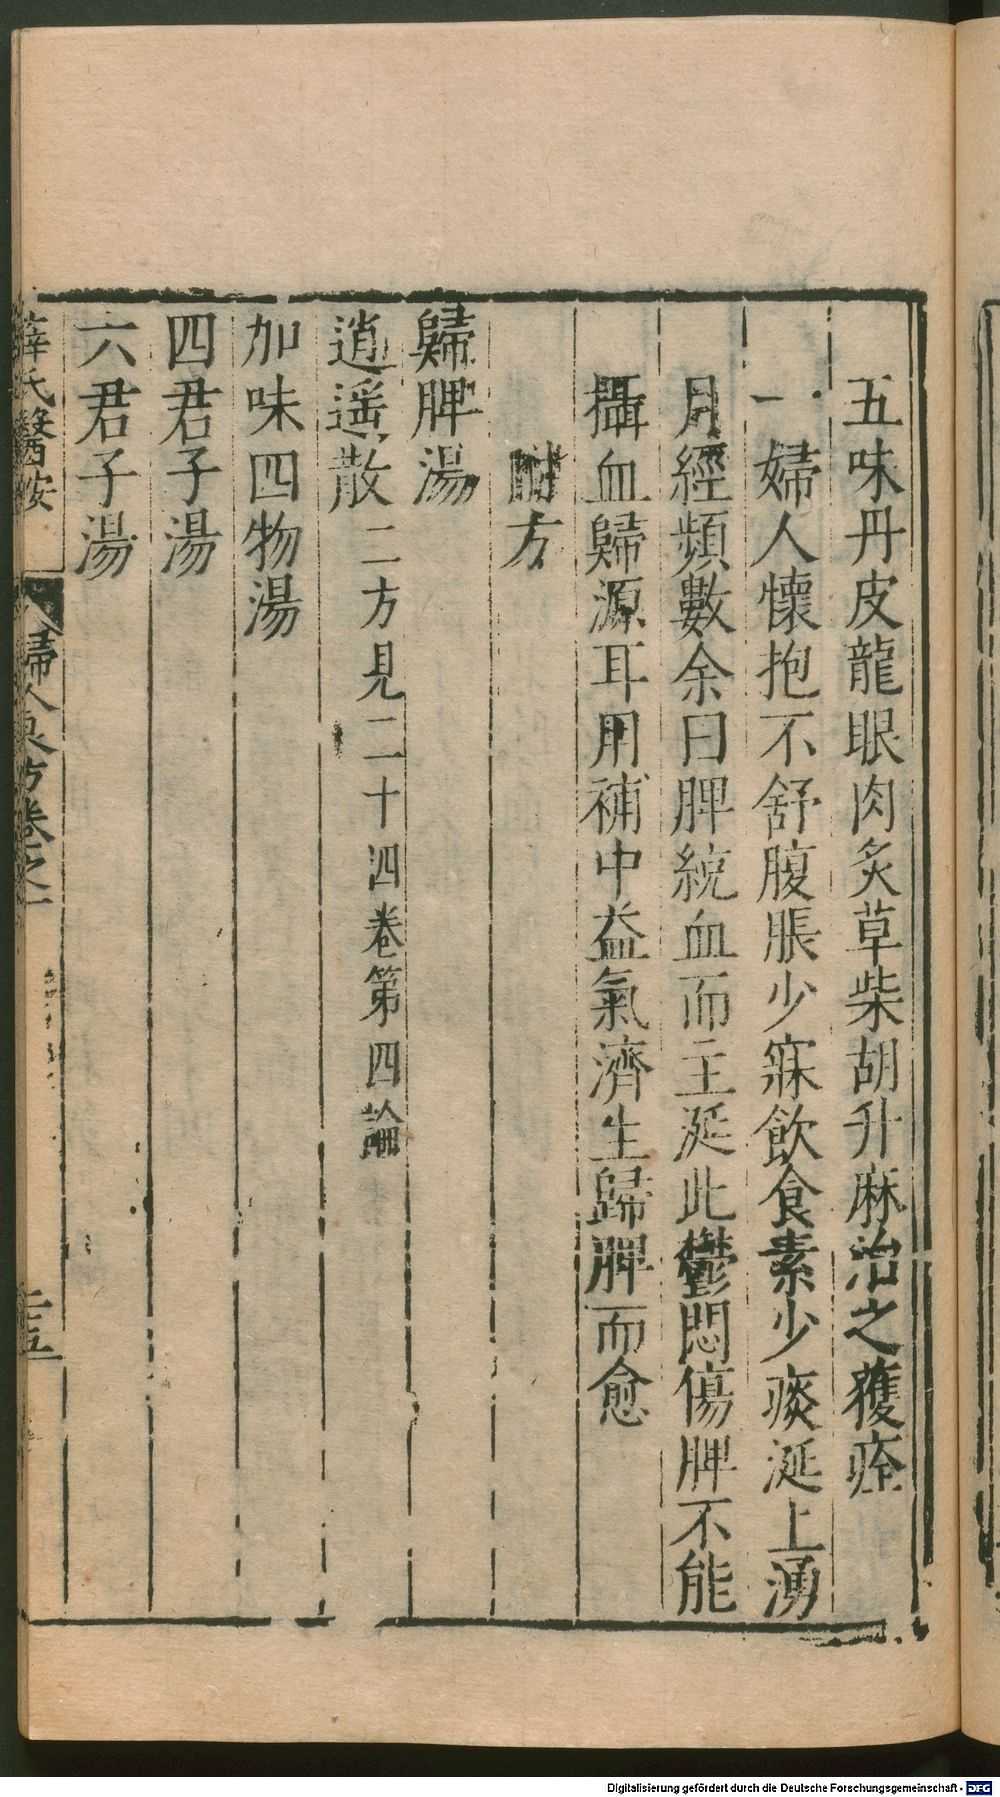 五味丹皮龍眼肉炙草柴胡升麻治之獲痊
一婦人懷抱不舒腹脹少寐飲食素少痰涎上湧
月經頻數余曰脾統血而主涎此鬱悶傷脾不能
攝血歸源耳用補中益氣濟生歸脾而愈
附方
歸脾湯
逍遥散二方見二十四卷第四論
加味四物湯
四君子湯
六君子湯
薛氏醫按 婦人良方卷之一 二十五
Digitalisierung gefördert durch die Deutsche Forschungsgemeinschaft - DFG